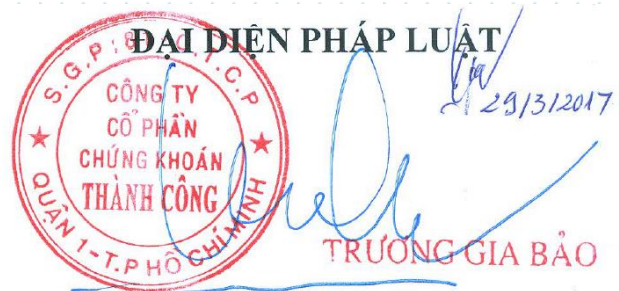 ĐẠI DIỆN PHÁP LUẬT
29/3/2017
CÔNG TY
CỔ PHẦN
CHỨNG KHOÁN
THÀNH CÔNG
QUẬN 1-T.P HỒ CHÍ MINH
TRƯƠNG GIA BẢO